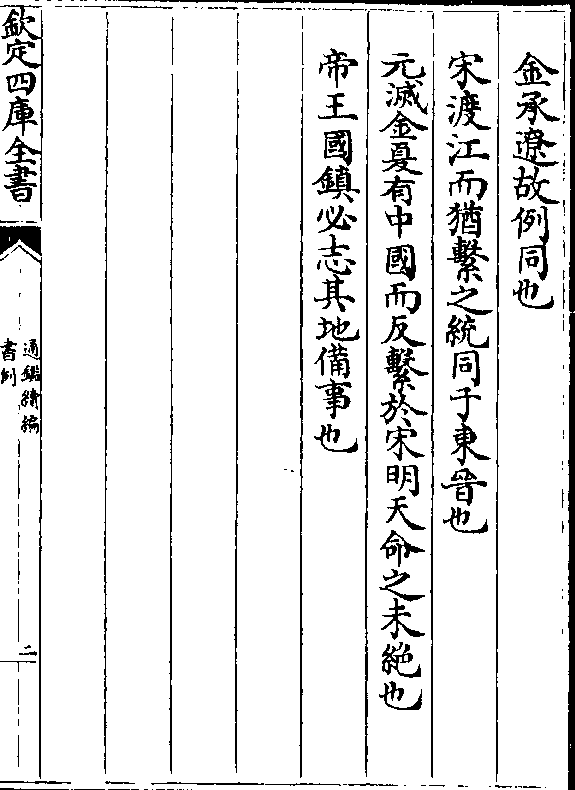 金承遼故例同也
宋渡江而猶繫之統同于東晉也
元滅金夏有中國而反繫於宋明天命之未絕也
帝王國鎮必志其地備事也
欽定四庫全書
通鑑續編
書例
二